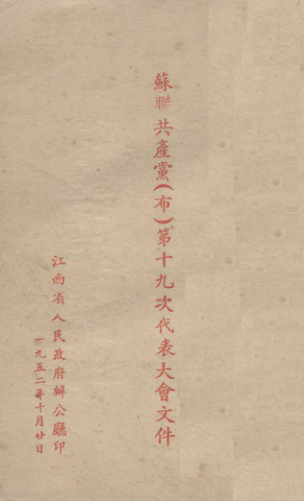 蘇聯共產黨(布)第十九次代表大會文件
江西省人民政府辦公廳印
一九五二年十月廿日